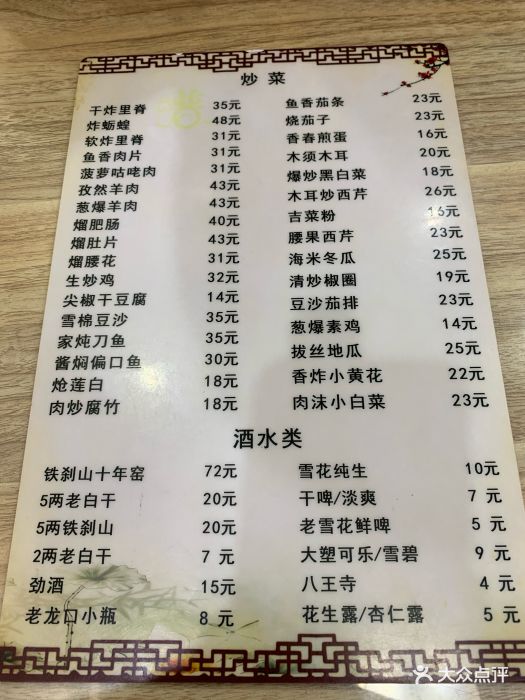 炒菜
干炸里脊 35元
炸蛎蝗 48元
软炸里脊 31元
鱼香肉片 31元
菠萝咕咾肉 31元
孜然羊肉 43元
葱爆羊肉 43元
熘肥肠 40元
熘肚片 43元
熘腰花 31元
生炒鸡 32元
尖椒干豆腐 14元
雪棉豆沙 35元
家炖刀鱼 35元
酱焖偏口鱼 30元
炝莲白 18元
肉炒腐竹 18元
鱼香茄条 23元
烧茄子 23元
香春煎蛋 16元
木须木耳 20元
爆炒黑白菜 18元
木耳炒西芹 26元
吉菜粉 16元
腰果西芹 23元
海米冬瓜 25元
清炒椒圈 19元
豆沙茄排 23元
葱爆素鸡 14元
拔丝地瓜 25元
香炸小黄花 22元
肉沫小白菜 23元
酒水类
铁刹山十年窑 72元
5两老白干 20元
5两铁刹山 20元
2两老白干 7元
劲酒 15元
老龙口小瓶 8元
雪花纯生 10元
干啤/淡爽 7元
老雪花鲜啤 5元
大塑可乐/雪碧 9元
八王寺 4元
花生露/杏仁露 5元
大众点评